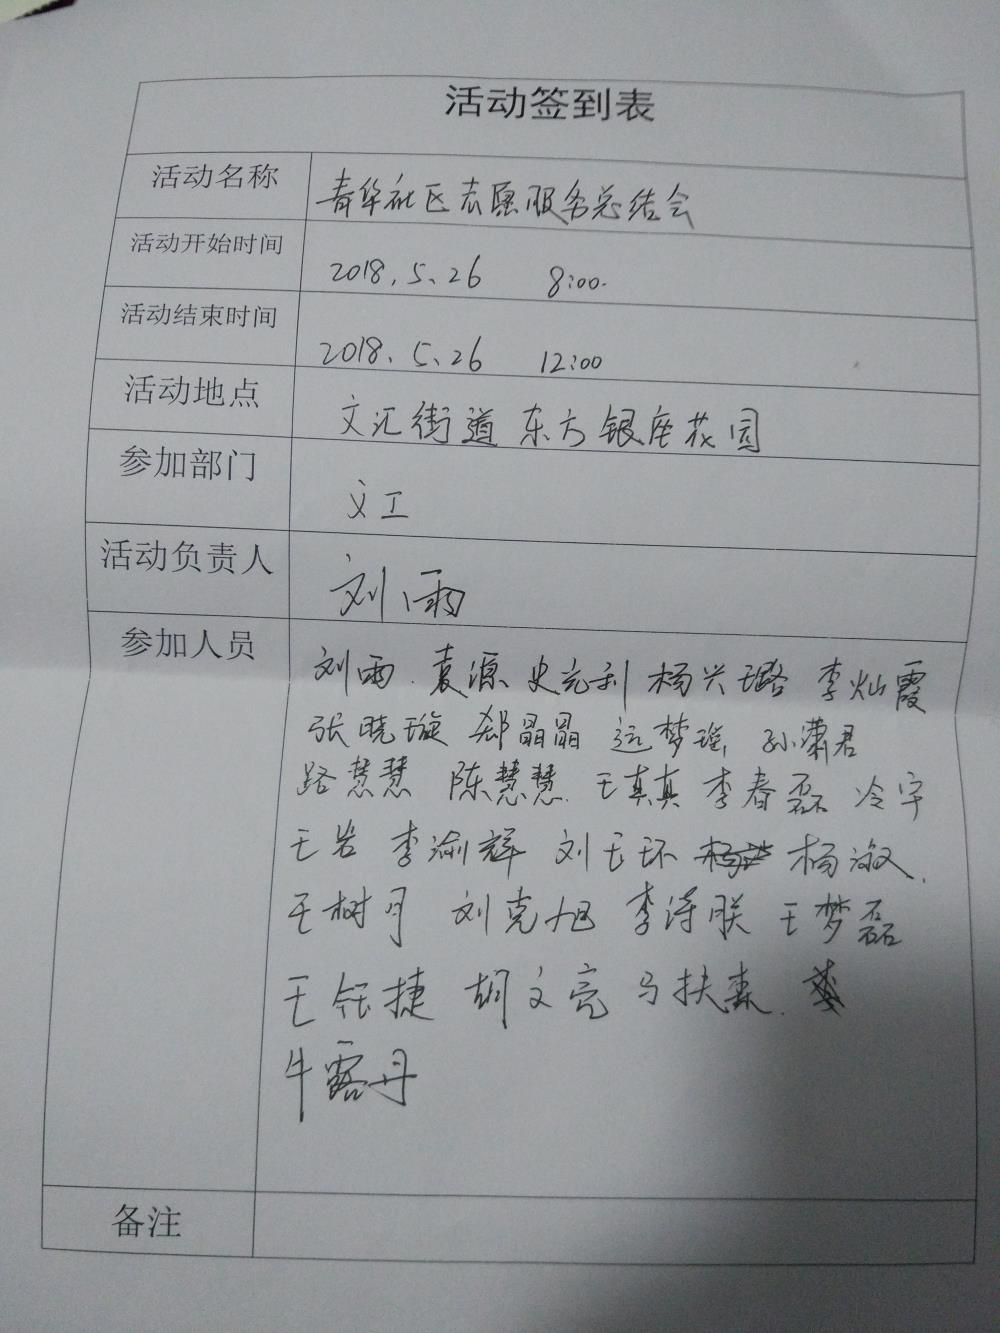 活动签到表
活动名称 青华社区志愿服务总结会
活动开始时间 2018.5.26 8:00.
活动结束时间 2018.5.26 12:00
活动地点 文汇街道 东方银座花园
参加部门 文工
活动负责人 刘雨
参加人员 刘雨. 袁源 史克利 杨兴璐 李灿霞
张晓璇 郄晶晶 远梦瑶 孙潇君
路慧慧 陈慧慧. 王真真 李春磊 冷宇
王岩 李渝辉 刘玉环 杨淑.
王树月 刘克旭 李诗朕 王梦磊
王钰捷 胡文亮 马扶森.
牛露丹
备注